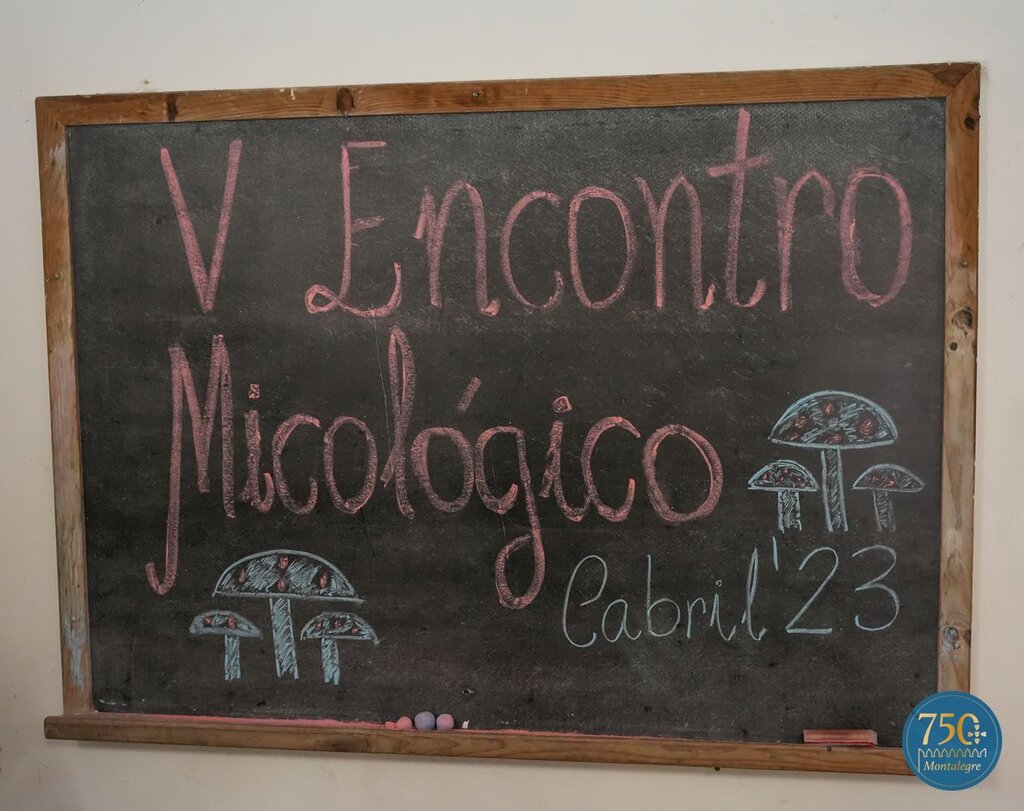 V Encontro
Micológico
Cabril'23
750
Montalegre